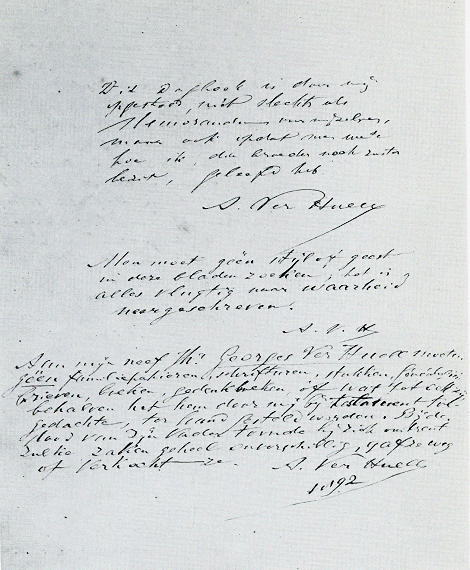 Dit Dagboek is door mij
opgesteld, niet slechts als
Memorandum voor mijzelven,
maar ook opdat men wete
hoe ik, die broeder noch zuster
bezit, geleefd heb
A. Ver Huell
Men moet geen stijl of geest
in deze bladen zoeken; het is
alles vlugtig maar waarheid
neergeschreven.
A. V. H
Aan mijn neef Mr Georges Ver Huell moeten
géén familiepapieren, schrifturen, stukken,
brieven, boeken, gedenkboeken of wat het ook zij
behalven het hem door mij bij testament toe
gedachte, ter hand gesteld worden. Bij de
dood van zijn Vader toonde hij zich omtrent
zulke zaken geheel onverschillig, gaf ze weg
of verkocht ze.
A. Ver Huell
92